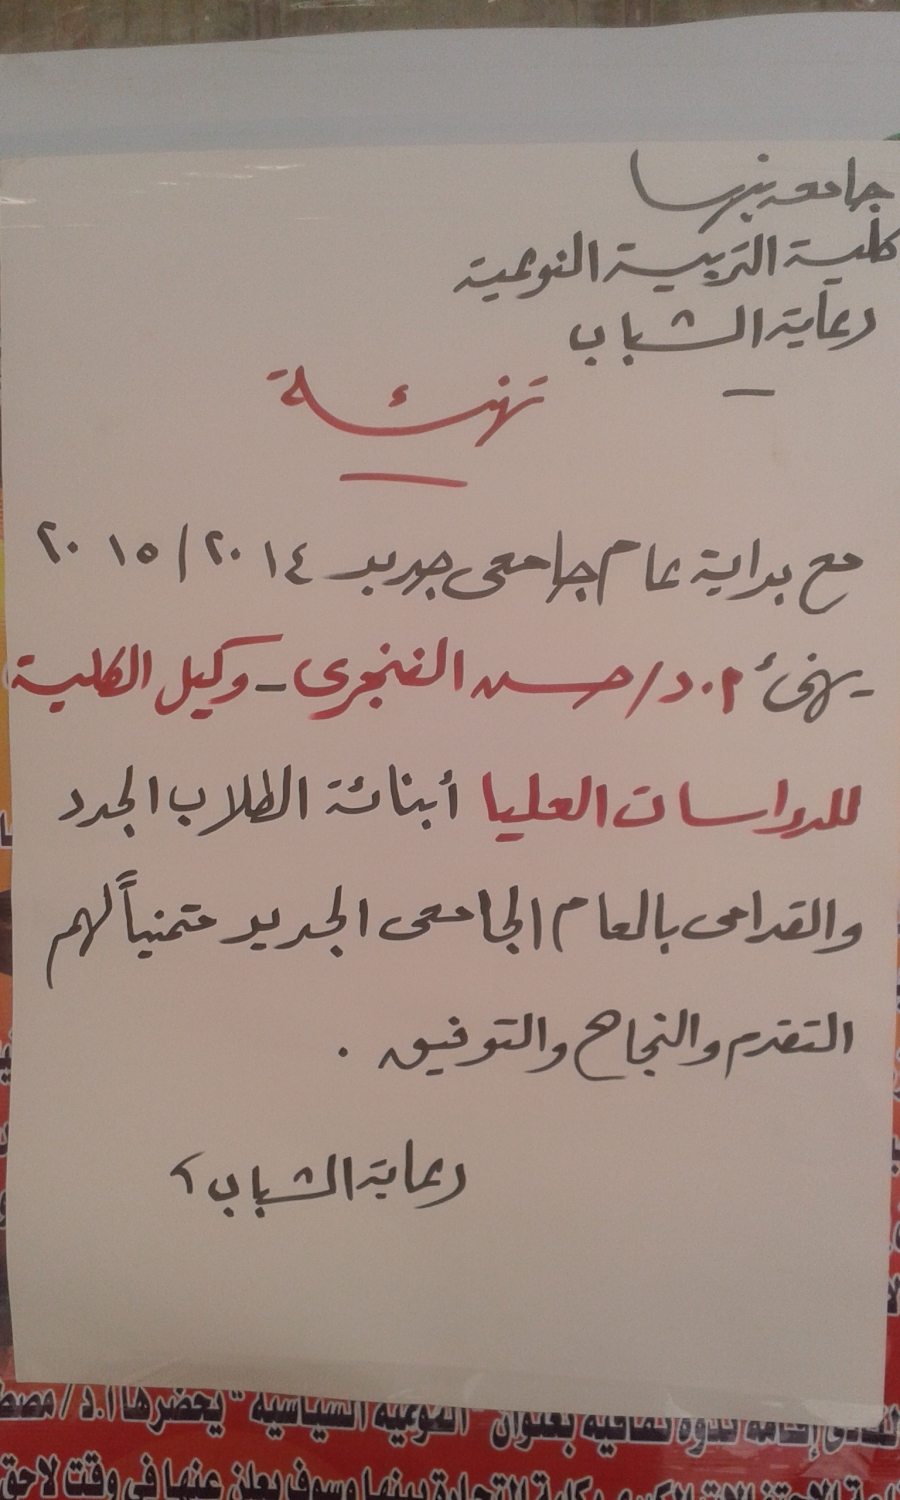 جامعة بنها
كلية التربية النوعية
رعاية الشباب
تهنئة
مع بداية عام جامعى جديد ٢٠١٤/٢٠١٥
يهنئ ٢.د/ حسن الفنجرى - وكيل الكلية
للدراسات العليا أبنائة الطلاب الجدد
والقدامى بالعام الجامعى الجديد متمنياً لهم
التقدم والنجاح والتوفيق .
رعاية الشباب
إقامة ندوة ثقافية بعنوان " التوعية السياسية " يحضرها ا.د/
بكلية التجارة ببنها وسوف يعلن عنها فى وقت لاحق